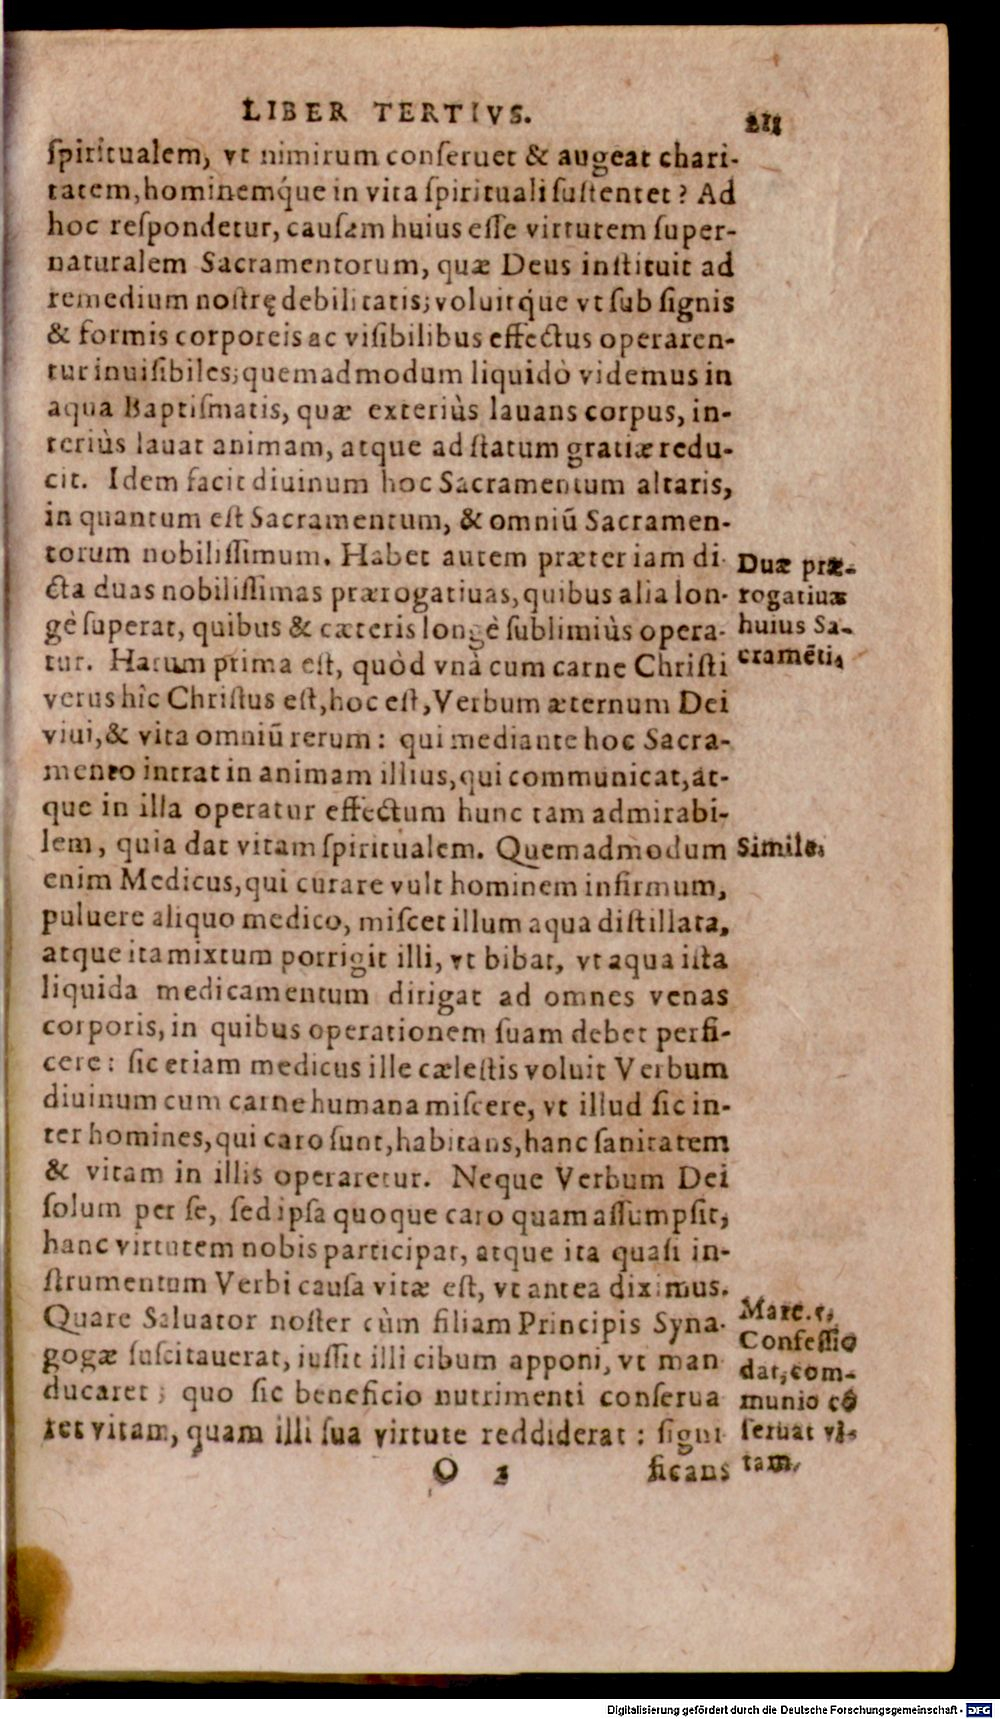 LIBER TERTIVS.
ſpiritualem, vt nimirum conſeruet & augeat chari-
tatem, hominemq́ue in vita ſpirituali ſuſtentet? Ad
hoc reſpondetur, cauſam huius eſſe virtutem ſuper-
naturalem Sacramentorum, quæ Deus inſtituit ad
remedium noſtrę debilitatis; voluitq́ue vt ſub ſignis
& formis corporeis ac viſibilibus effectus operaren-
tur inuiſibiles; quemadmodum liquidò videmus in
aqua Baptiſmatis, quæ exteriùs lauans corpus, in-
teriùs lauat animam, atque ad ſtatum gratiæ redu-
cit. Idem facit diuinum hoc Sacramentum altaris,
in quantum eſt Sacramentum, & omniũ Sacramen-
torum nobiliſſimum. Habet autem præter iam di-
cta duas nobiliſſimas prærogatiuas, quibus alia lon-
gè ſuperat, quibus & cæteris longè ſublimiùs opera-
tur. Harum prima eſt, quòd vnà cum carne Chriſti
verus hîc Chriſtus eſt, hoc eſt, Verbum æternum Dei
viui, & vita omniũ rerum: qui mediante hoc Sacra-
mento intrat in animam illius, qui communicat, at-
que in illa operatur effectum hunc tam admirabi-
lem, quia dat vitam ſpiritualem. Quemadmodum
enim Medicus, qui curare vult hominem infirmum,
puluere aliquo medico, miſcet illum aqua diſtillata,
atque ita mixtum porrigit illi, vt bibat, vt aqua iſta
liquida medicamentum dirigat ad omnes venas
corporis, in quibus operationem ſuam debet perfi-
cere: ſic etiam medicus ille cæleſtis voluit Verbum
diuinum cum carne humana miſcere, vt illud ſic in-
ter homines, qui caro ſunt, habitans, hanc ſanitatem
& vitam in illis operaretur. Neque Verbum Dei
ſolum per ſe, ſed ipſa quoque caro quam aſſumpſit,
hanc virtutem nobis participat, atque ita quaſi in-
ſtrumentum Verbi cauſa vitæ eſt, vt antea diximus.
Quare Saluator noſter cùm filiam Principis Syna-
gogæ ſuſcitauerat, iuſſit illi cibum apponi, vt man
ducaret; quo ſic beneficio nutrimenti conſerua
ret vitam, quam illi ſua virtute reddiderat: ſigni
O 2 ficans
Duæ præ-
rogatiuæ
huius Sa-
cramẽti.
Simile.
Marc.5.
Confeſſio
dat, com-
munio cõ
ſeruat vi-
tam.
Digitalisierung gefördert durch die Deutsche Forschungsgemeinschaft - DFG